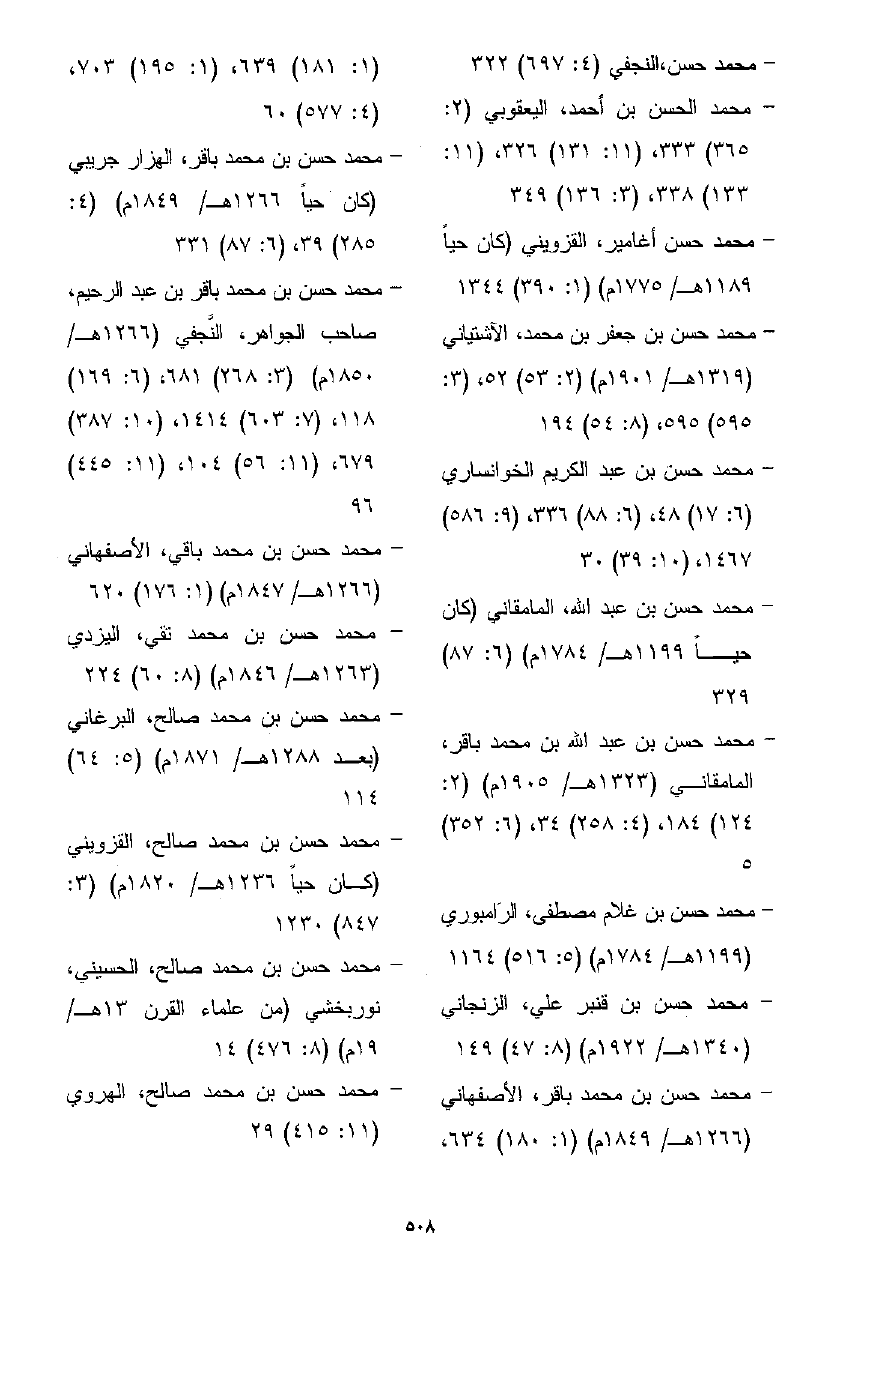 - محمد حسن،النجفي (٤: ٦٩٧) ٣٢٢
- محمد الحسن بن أحمد، اليعقوبي (٢:
٣٦٥) ٣٣٣، (١١: ١٣١) ٣٢٦، (١١:
١٣٣) ٣٣٨، (٣: ١٣٦) ٣٤٩
- محمد حسن أغامير، القزويني (كان حياً
١١٨٩هـ/ ١٧٧٥م) (١: ٣٩٠) ١٣٤٤
- محمد حسن بن جعفر بن محمد، الآشتياني
(١٣١٩هـ/ ١٩٠١م) (٢: ٥٣) ٥٢، (٣:
٥٩٥) ٥٩٥، (٨: ٥٤) ١٩٤
- محمد حسن بن عبد الكريم الخوانساري
(٦: ١٧) ٤٨، (٦: ٨٨) ٣٣٦، (٩: ٥٨٦)
١٤٦٧، (١٠: ٣٩) ٣٠
- محمد حسن بن عبد الله، المامقاني (كان
حيــاً ١١٩٩هـ/ ١٧٨٤م) (٦: ٨٧)
٣٢٩
- محمد حسن بن عبد الله بن محمد باقر،
المامقاني (١٣٢٣هـ/ ١٩٠٥م) (٢:
١٢٤) ١٨٤، (٤: ٢٥٨) ٣٤، (٦: ٣٥٢)
٥
- محمد حسن بن غلام مصطفى، الرامبوري
(١١٩٩هـ/ ١٧٨٤م) (٥: ٥١٦) ١١٦٤
- محمد حسن بن قنبر علي، الزنجاني
(١٣٤٠هـ/ ١٩٢٢م) (٨: ٤٧) ١٤٩
- محمد حسن بن محمد باقر، الأصفهاني
(١٢٦٦هـ/ ١٨٤٩م) (١: ١٨٠) ٦٣٤،
(١: ١٨١) ٦٣٩، (١: ١٩٥) ٧٠٣،
(٤: ٥٧٧) ٦٠
- محمد حسن بن محمد باقر، الهزار جريبي
(كان حياً ١٢٦٦هـ/ ١٨٤٩م) (٤:
٢٨٥) ٣٩، (٦: ٨٧) ٣٣١
- محمد حسن بن محمد باقر بن عبد الرحيم،
صاحب الجواهر، النَّجفي (١٢٦٦هـ/
١٨٥٠م) (٣: ٢٦٨) ٦٨١، (٦: ١٦٩)
١١٨، (٧: ٦٠٣) ١٤١٤، (١٠: ٣٨٧)
٦٧٩، (١١: ٥٦) ١٠٤، (١١: ٤٤٥)
٩٦
- محمد حسن بن محمد باقي، الأصفهاني
(١٢٦٦هـ/ ١٨٤٧م) (١: ١٧٦) ٦٢٠
- محمد حسن بن محمد تقي، اليزدي
(١٢٦٣هـ/ ١٨٤٦م) (٨: ٦٠) ٢٢٤
- محمد حسن بن محمد صالح، البرغاني
(بعـد ١٢٨٨هـ/ ١٨٧١م) (٥: ٦٤)
١١٤
- محمد حسن بن محمد صالح، القزويني
(كـان حياً ١٢٣٦هـ/ ١٨٢٠م) (٣:
٨٤٧) ١٢٣٠
- محمد حسن بن محمد صالح، الحسيني،
نوربخشي (من علماء القرن ١٣هـ/
١٩م) (٨: ٤٧٦) ١٤
- محمد حسن بن محمد صالح، الهروي
(١١: ٤١٥) ٢٩
٥٠٨